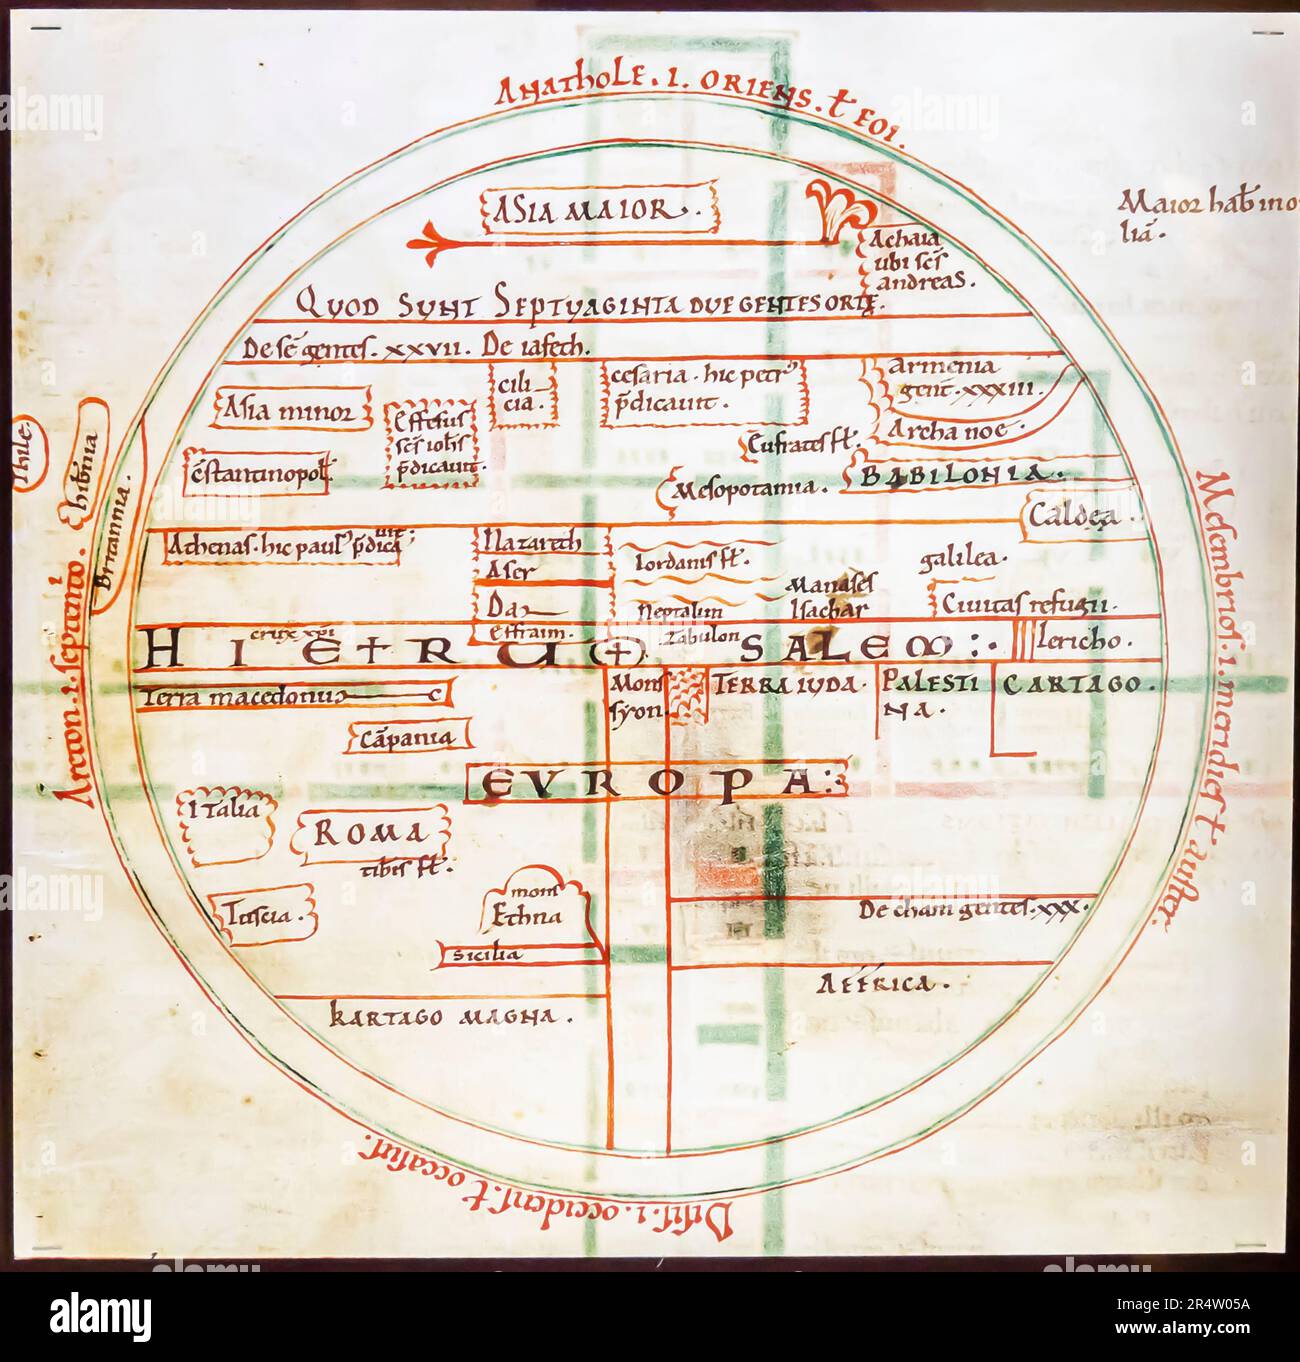 Anathole . i . oriens . t eoi .
Asia maior .
Maior hab in o
lia .
Achaia
ubi scs
andreas .
Quod sunt Septuaginta due gentes orte .
De se gentes . xxvii . De iafeth .
Asia minor
Effesus
scs iohs
pdicauit .
cili
cia .
cesaria . hic petr
pdicauit .
Armenia
gent . xxxiii .
Archa noe .
Eufrates fl .
cstantinopol
Mesopotamia .
Babilonia .
Caldea .
hibnia
Britannia .
Athenas . hic paul pdica
uit :
Nazareth
Aser
Dan
effraim .
Iordanis fl .
Neptalim
Zabulon
Manases
Isachar
galilea .
Ciuitas refugii .
crux xpi
Hierusalem :
Iericho .
Terra macedonu
Mons
syon .
Terra iuda .
Palesti
na .
Cartago .
Capania
Europa :
Italia
Roma
tibis fl .
Tuscia .
mons
Ethna
sicilia
De cham gentes . xxx .
Affrica .
kartago magna .
Arcton . i . septentrio .
Mesembrios . i . meridies t auster .
Disis . i . occidens . t occasus .
alamy
Image ID: 2R4W05A
www.alamy.com